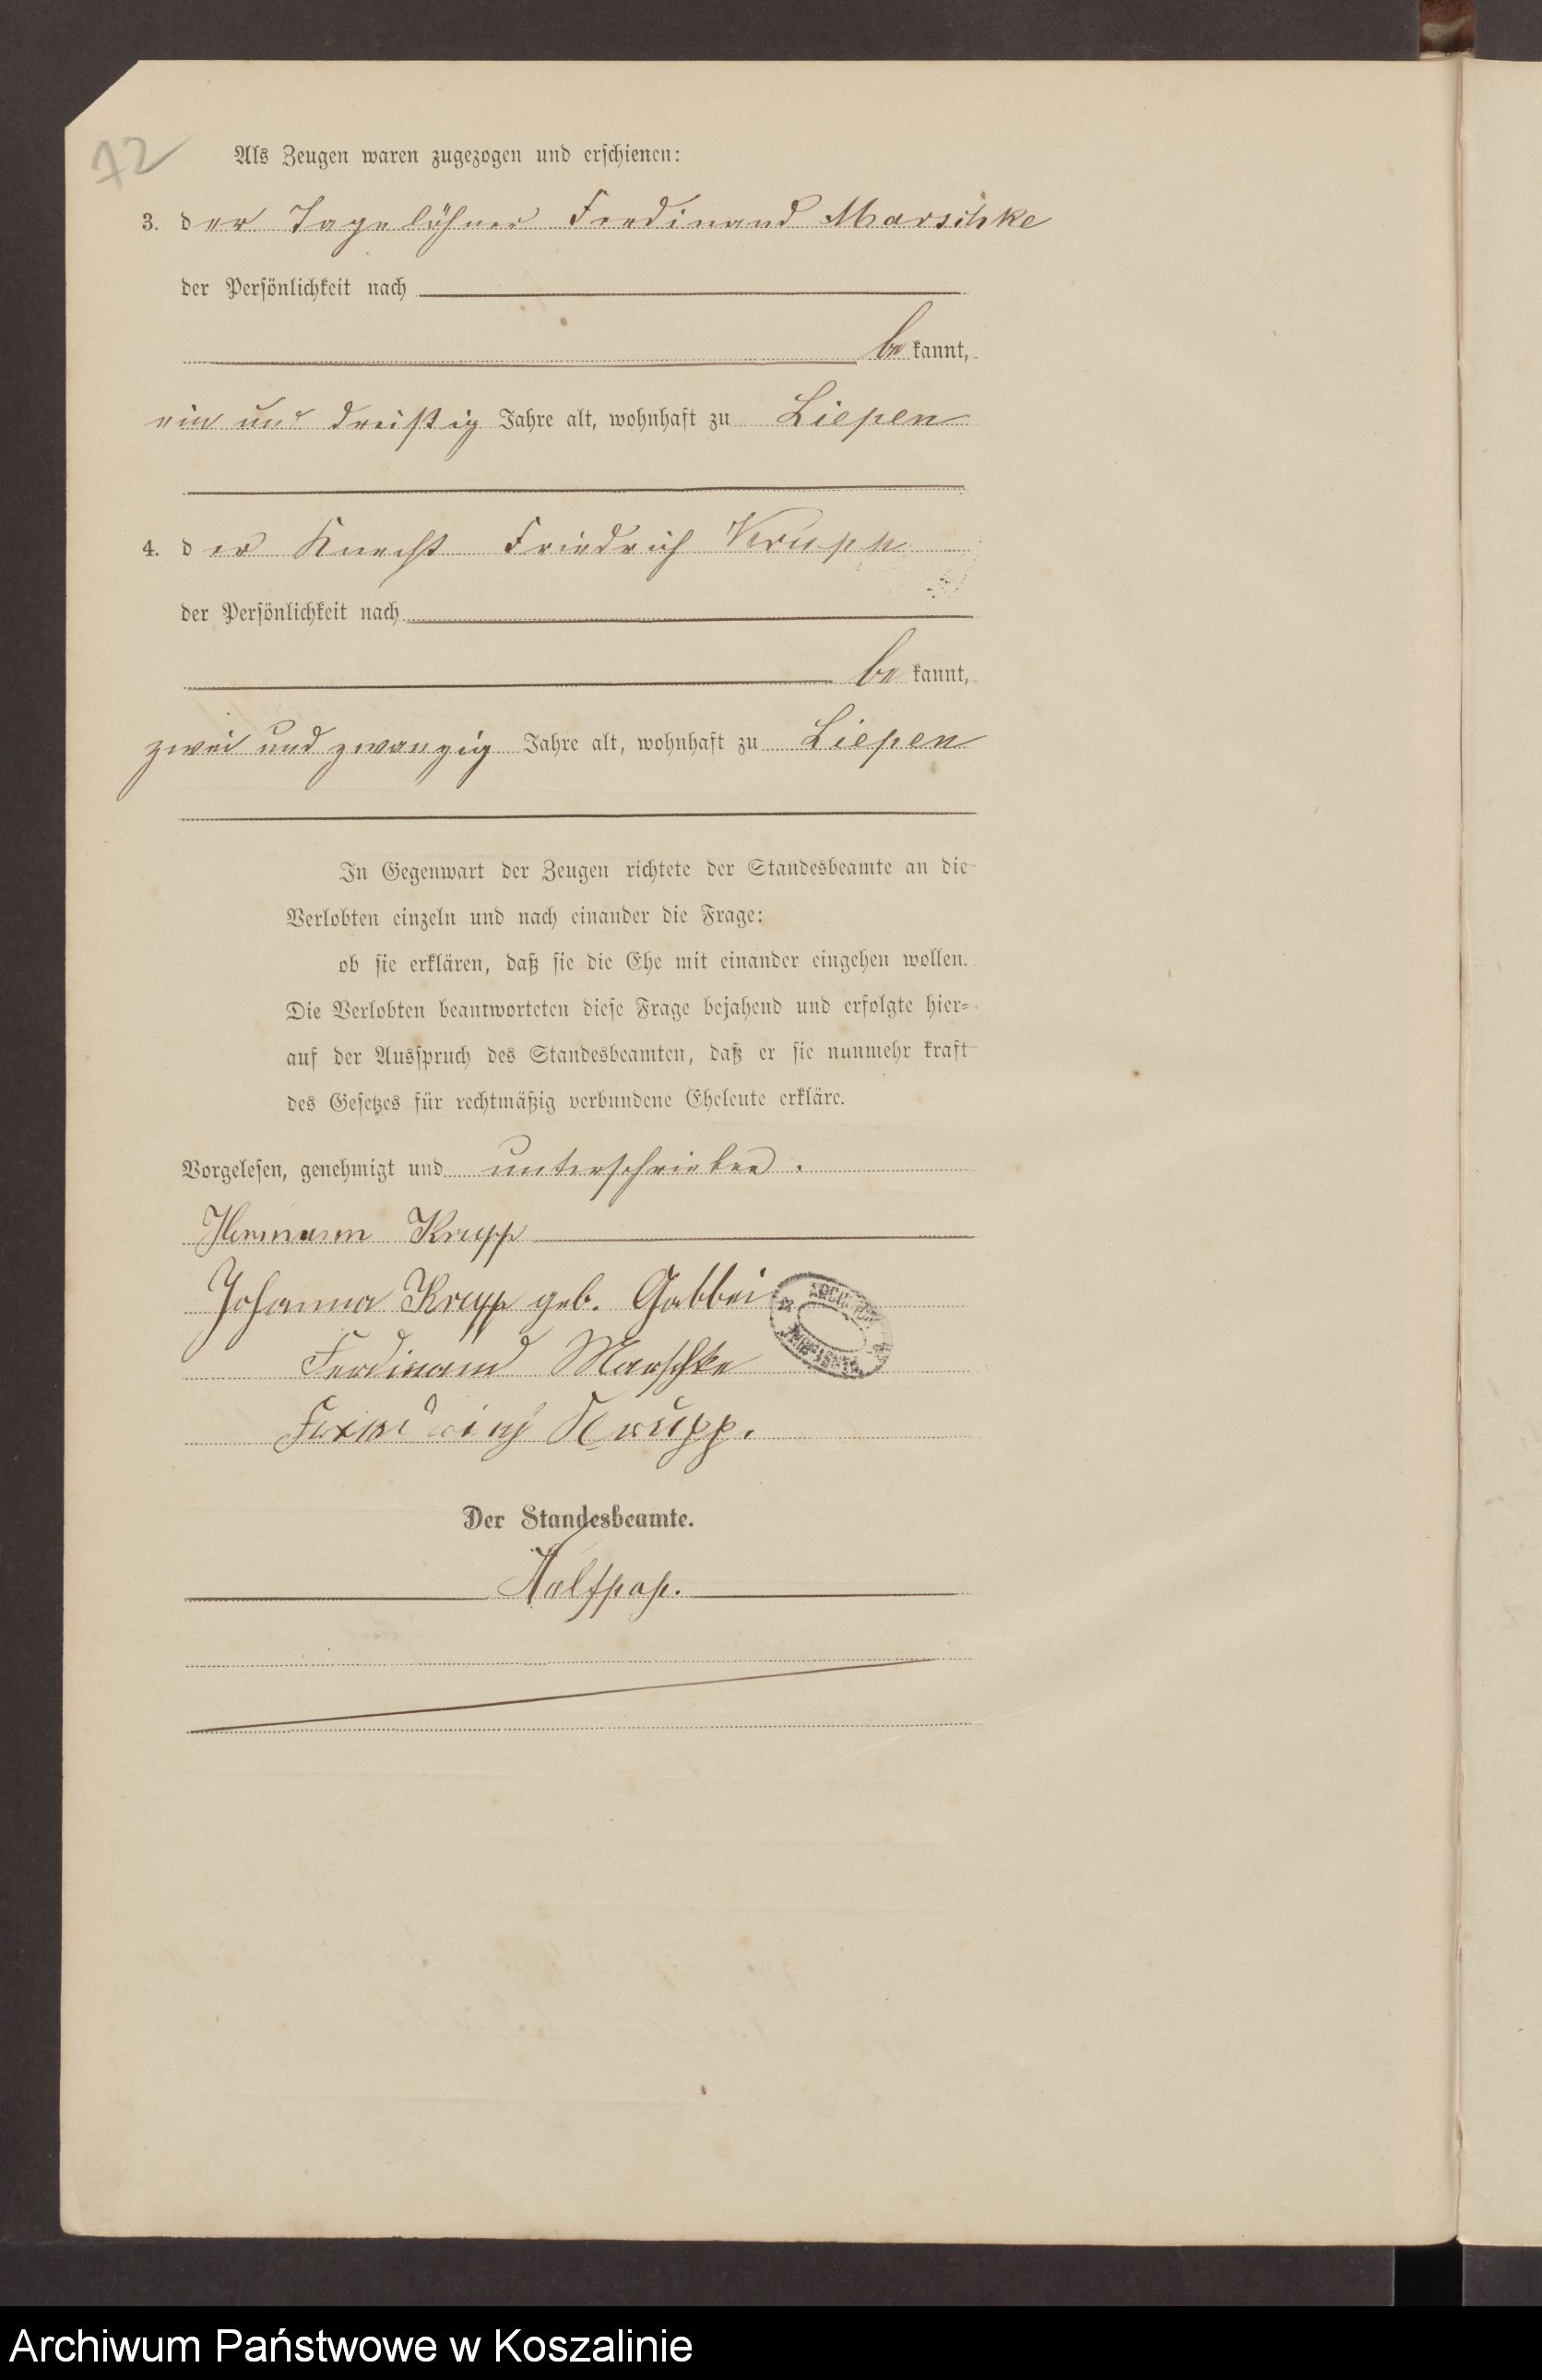 72
Als Zeugen waren zugezogen und erschienen:
3. der Tagelöhner Ferdinand Marschke
der Persönlichkeit nach
bekannt,
ein und dreißig Jahre alt, wohnhaft zu Liepen
4. der Knecht Friedrich Krupp
der Persönlichkeit nach
bekannt,
zwei und zwanzig Jahre alt, wohnhaft zu Liepen
In Gegenwart der Zeugen richtete der Standesbeamte an die
Verlobten einzeln und nach einander die Frage:
ob sie erklären, daß sie die Ehe mit einander eingehen wollen.
Die Verlobten beantworteten diese Frage bejahend und erfolgte hier=
auf der Ausspruch des Standesbeamten, daß er sie nunmehr kraft
des Gesetzes für rechtmäßig verbundene Eheleute erkläre.
Vorgelesen, genehmigt und unterschrieben.
Hermann Krupp
Johanna Krupp geb. Gabbei
Ferdinand Marschke
Friedrich Krupp.
Der Standesbeamte.
Halfpap.
Archiwum Państwowe w Koszalinie